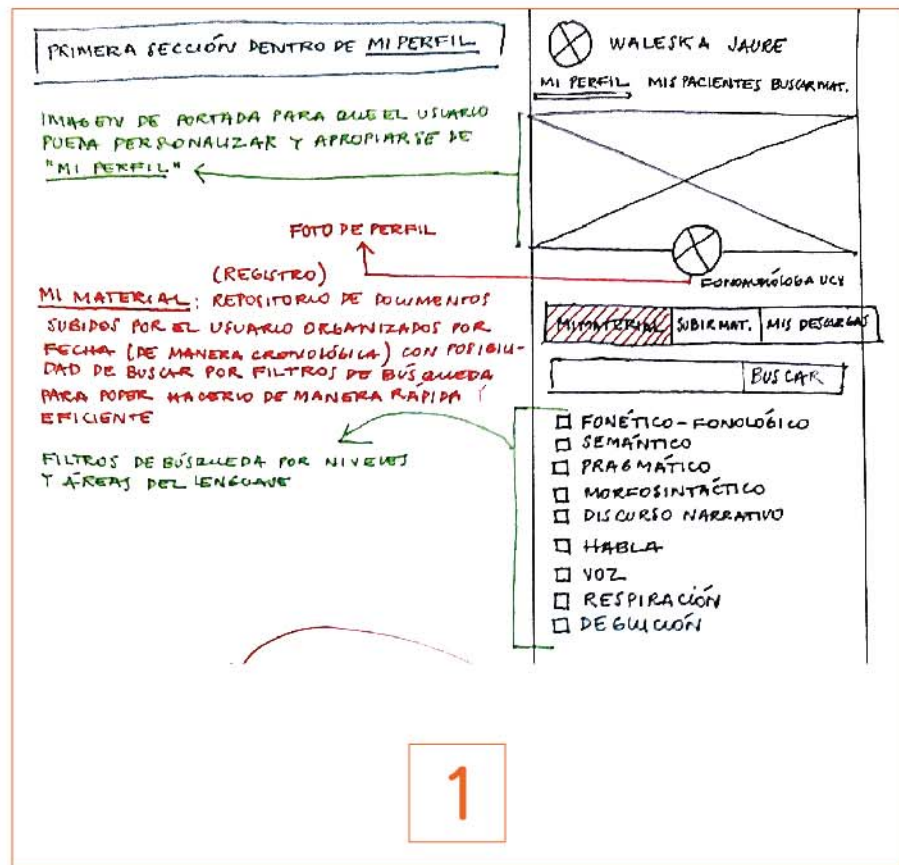 PRIMERA SECCIÓN DENTRO DE MI PERFIL
IMAGEN DE PORTADA PARA QUE EL USUARIO
PUEDA PERSONALIZAR Y APROPIARSE DE
"MI PERFIL"
FOTO DE PERFIL
(REGISTRO)
MI MATERIAL: REPOSITORIO DE DOCUMENTOS
SUBIDOS POR EL USUARIO ORGANIZADOS POR
FECHA (DE MANERA CRONOLÓGICA) CON POSIBILI-
DAD DE BUSCAR POR FILTROS DE BÚSQUEDA
PARA PODER HACERLO DE MANERA RÁPIDA Í
EFICIENTE
FILTROS DE BÚSQUEDA POR NIVELES
Y ÁREAS DEL LENGUAJE
WALESKA JAURE
MI PERFIL MIS PACIENTES BUSCAR MAT.
FONOAUDIÓLOGA UCV
MI MATERIAL SUBIR MAT. MIS DESCARGAS
BUSCAR
FONÉTICO-FONOLÓGICO
SEMÁNTICO
PRAGMÁTICO
MORFOSINTÁCTICO
DISCURSO NARRATIVO
HABLA
VOZ
RESPIRACIÓN
DEGLUCIÓN
1